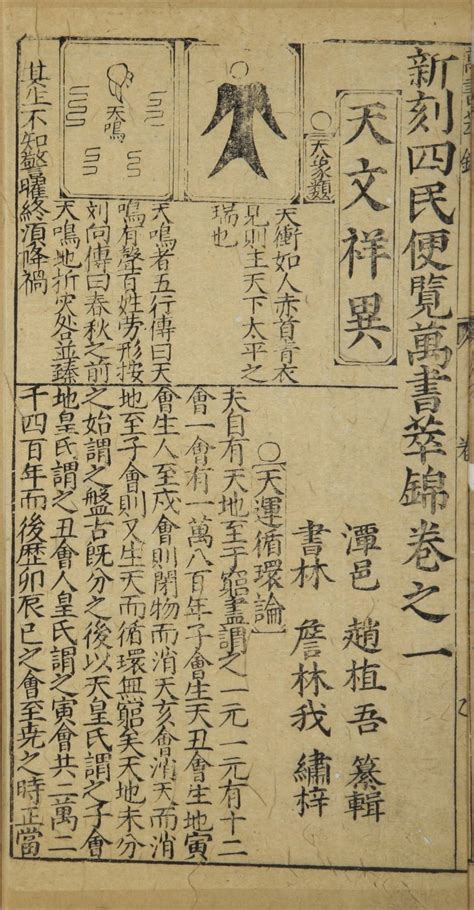 新刻四民便覽萬書萃錦卷之一
潭邑 趙植吾 纂輯
書林 詹林我 繡梓
天文祥異
○天象類
天衝如人赤首青衣
見則主天下太平之
瑞也
天鳴
天鳴者五行傳曰天
鳴有聲百姓勞形按
刘向傳曰春秋之前
天鳴地折灾咎並臻
其主不知警懼終湏降禍
○天運循環論
夫自有天地至于窮盡謂之一元一元有十二
會一會有一萬八百年子會生天丑會生地寅
會生人至戌會則閉物而消天亥會消天而消
地至子會則又生天而循環無窮矣天地未分
之始謂之盤古既分之後以天皇氏謂之子會
地皇氏謂之丑會人皇氏謂之寅會共二萬二
千四百年而後歷卯辰巳之會至尭之時正當